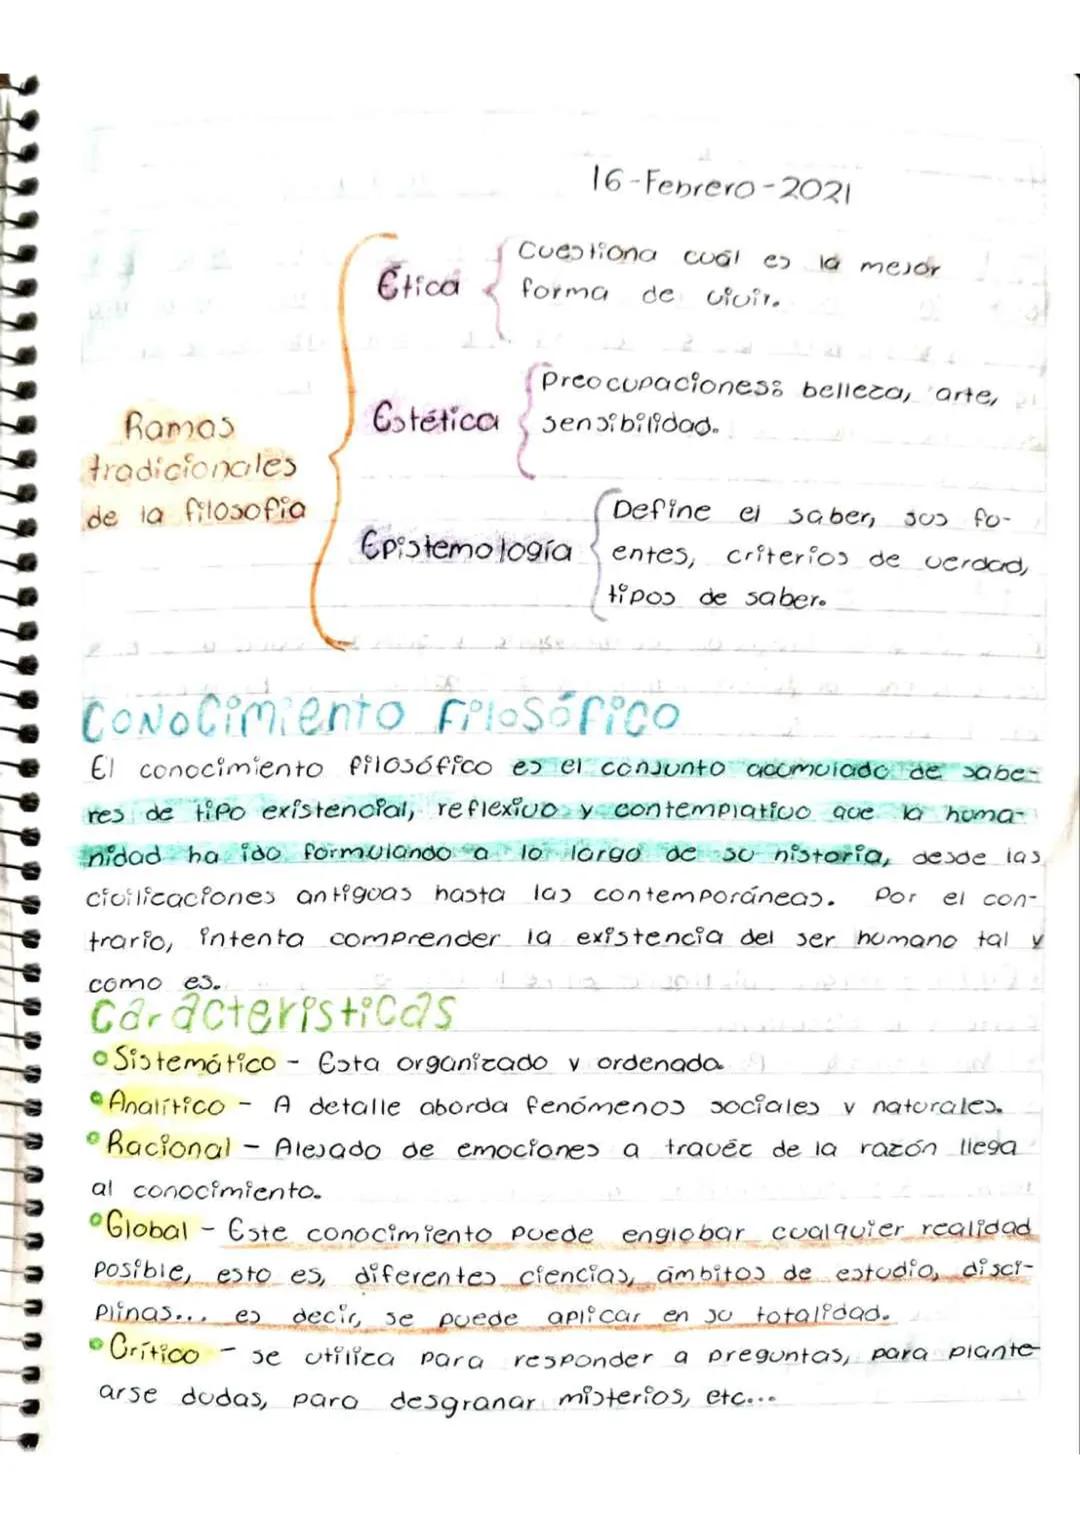 16-Febrero-2021
Ramas
tradicionales
de la filosofía
Ética
Cuestiona cuál es la mejor
forma de vivir.
Estética
Preocupaciones: belleza, arte,
sensibilidad.
Epistemología
Define el saber, sus fu-
entes, criterios de verdad,
tipos de saber.
Conocimiento Filosófico
El conocimiento filosófico es el conjunto acumulado de sabe-
res de tipo existencial, reflexivo y contemplativo que la huma-
nidad ha ido formulando a lo largo de su historia, desde las
civilizaciones antiguas hasta las contemporáneas. Por el con-
trario, intenta comprender la existencia del ser humano tal y
como es.
Características
Sistemático - Esta organizado y ordenado.
Analítico - A detalle aborda fenómenos sociales y naturales.
Racional - Alejado de emociones a travéz de la razón llega
al conocimiento.
Global - Este conocimiento puede englobar cualquier realidad
posible, esto es, diferentes ciencias, ámbitos de estudio, disci-
plinas... es decir, se puede aplicar en su totalidad.
Crítico - se utiliza para responder a preguntas, para plante-
arse dudas, para desgranar misterios, etc...